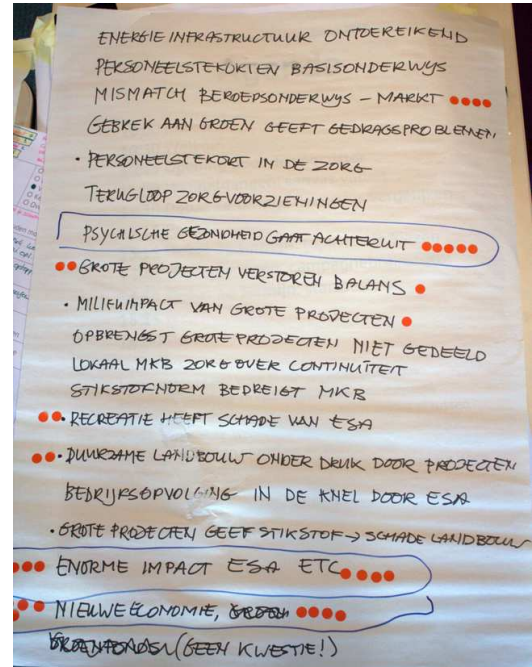 ENERGIE INFRASTRUCTUUR ONTOEREIKEND
PERSONEELSTEKORTEN BASISONDERWYS
MISMATCH BEROEPSONDERWYS - MARKT
GEBREK AAN GROEN GEEFT GEDRAGSPROBLEMEN
• PERSONEELSTEKORT IN DE ZORG
TERUGLOOP ZORGVOORZIENINGEN
PSYCHISCHE GEZONDHEID GAAT ACHTERUIT
GROTE PROJECTEN VERSTOREN BALANS
• MILIEUIMPACT VAN GROTE PROJECTEN
OPBRENGST GROTE PROJECTEN NIET GEDEELD
LOKAAL MKB ZORG OVER CONTINUÏTEIT
STIKSTOFNORM BEDREIGT MKB
• RECREATIE HEEFT SCHADE VAN ESA
• DUURZAME LANDBOUW ONDER DRUK DOOR PROJECTEN
BEDRIJFSOPVOLGING IN DE KNEL DOOR ESA
• GROTE PROJECTEN GEEF STIKSTOF → SCHADE LANDBOUW
ENORME IMPACT ESA ETC
NIEUWE ECONOMIE,
(GEEN KWESTIE!)